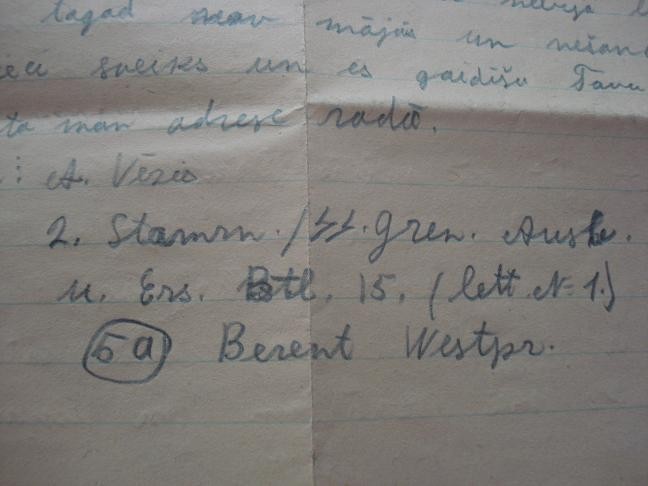 tagad nav mājās un
sveiks un es gaidīšu Tavu
man adrese radīt.
: A. Vēzis
2. Stamm. / SS. Gren. Ausb.
u. Ers. Btl. 15. (lett. N=1.)
5a Berent Westpr.